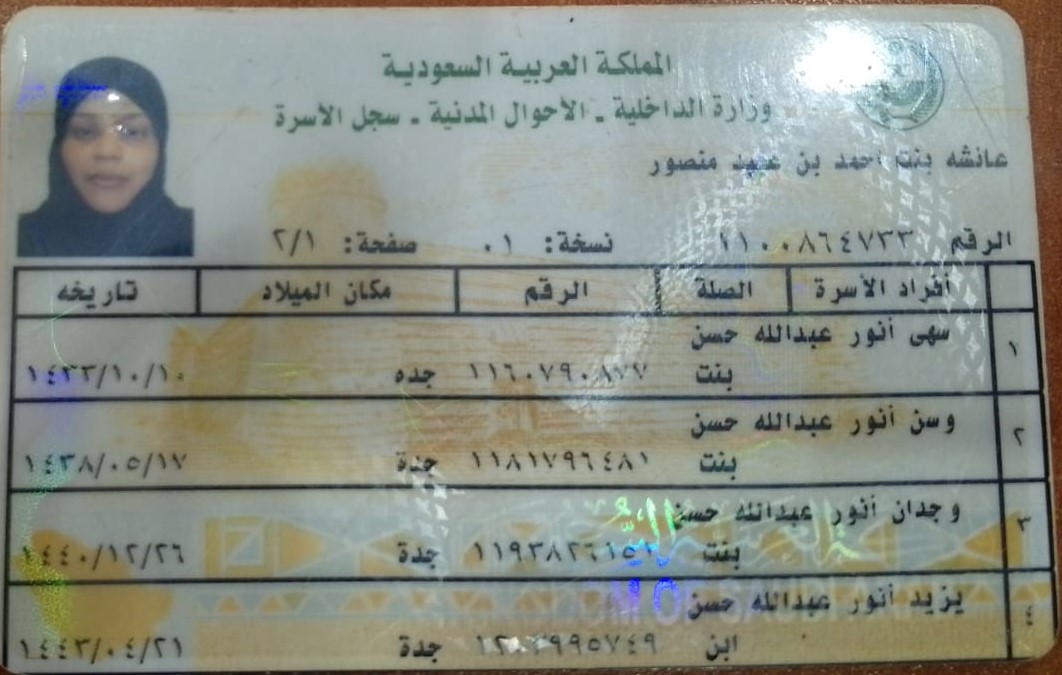 المملكة العربية السعودية
وزارة الداخلية - الأحوال المدنية - سجل الأسرة
عائشه بنت احمد بن عبيد منصور
الرقم ١١٠٠٨٦٤٧٣٣ نسخة: ٠١ صفحة: ٢/١
أفراد الأسرة الصلة الرقم مكان الميلاد تاريخه
١ سهى أنور عبدالله حسن
بنت ١١٦٠٧٩٠٨٧٧ جده ١٤٣٣/١٠/١٠
٢ وسن أنور عبدالله حسن
بنت ١١٨١٧٩٦٤٨١ جدة ١٤٣٨/٠٥/١٧
٣ وجدان أنور عبدالله حسن
بنت جدة ١٤٤٠/١٢/٢٦
٤ يزيد أنور عبدالله حسن
ابن جدة ١٤٤٣/٠٤/٢١